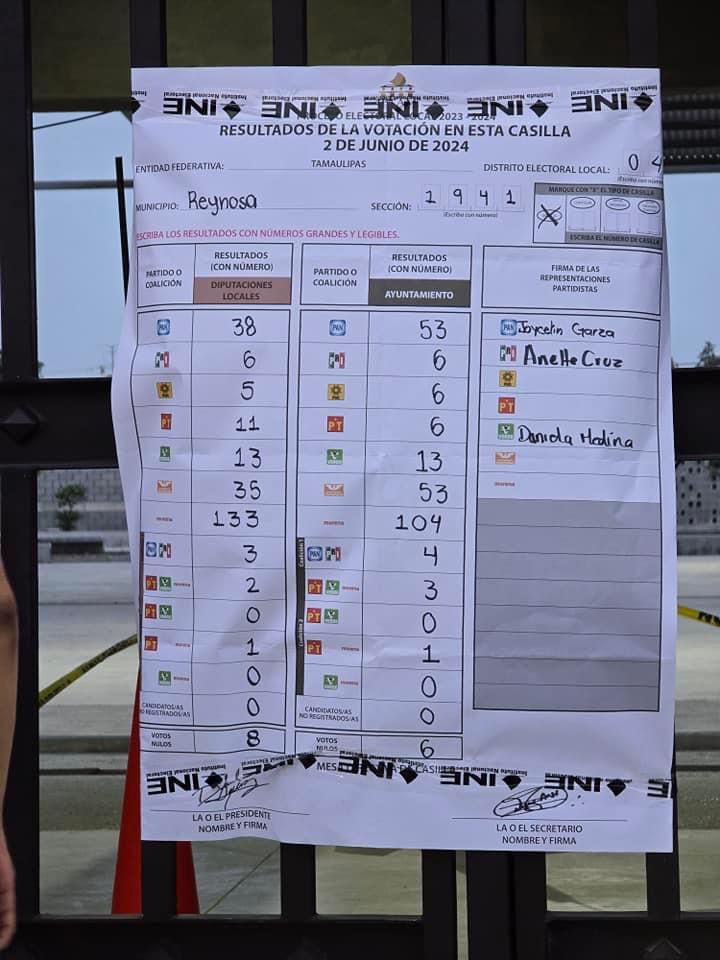 INE Instituto Nacional Electoral INE Instituto Nacional Electoral INE Instituto Nacional Electoral INE Instituto Nacional Electoral INE
PROCESO ELECTORAL LOCAL 2023 - 2024
RESULTADOS DE LA VOTACIÓN EN ESTA CASILLA
2 DE JUNIO DE 2024
ENTIDAD FEDERATIVA: TAMAULIPAS DISTRITO ELECTORAL LOCAL: 04
(Escriba con número)
MUNICIPIO: Reynosa SECCIÓN: 1941
(Escriba con número)
MARQUE CON "X" EL TIPO DE CASILLA
X
ESCRIBA EL NÚMERO DE CASILLA
ESCRIBA LOS RESULTADOS CON NÚMEROS GRANDES Y LEGIBLES.
PARTIDO O COALICIÓN RESULTADOS (CON NÚMERO) DIPUTACIONES LOCALES
PARTIDO O COALICIÓN RESULTADOS (CON NÚMERO) AYUNTAMIENTO
FIRMA DE LAS REPRESENTACIONES PARTIDISTAS
PAN 38 PAN 53 PAN Joycelin Garza
PRI 6 PRI 6 PRI Anette Cruz
PRD 5 PRD 6 PRD
PT 11 PT 6 PT
VERDE 13 VERDE 13 VERDE Daniela Medina
35 53
morena 133 morena 104 morena
PAN PRI 3 Coalición 1 PAN PRI 4
PT VERDE morena 2 PT VERDE morena 3
PT VERDE 0 Coalición 2 PT VERDE 0
PT morena 1 PT morena 1
VERDE morena 0 VERDE morena 0
CANDIDATOS/AS NO REGISTRADOS/AS 0 CANDIDATOS/AS NO REGISTRADOS/AS 0
VOTOS NULOS 8 VOTOS NULOS 6
INE Instituto Nacional Electoral INE Instituto Nacional Electoral INE Instituto Nacional Electoral INE Instituto Nacional Electoral INE
MESA DE CASILLA
LA O EL PRESIDENTE
NOMBRE Y FIRMA
LA O EL SECRETARIO
NOMBRE Y FIRMA